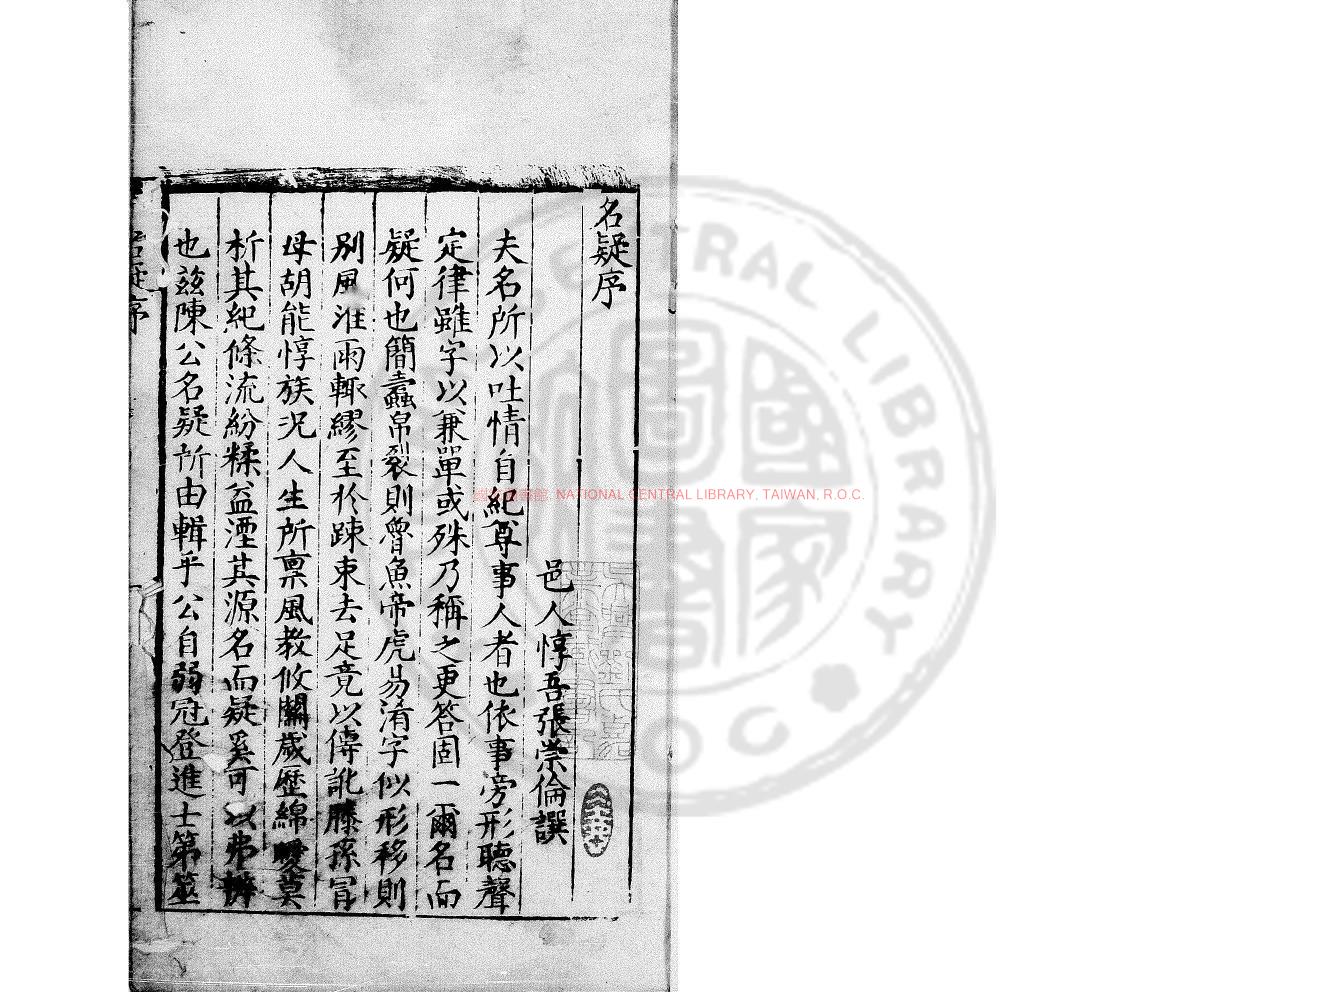 名疑序
邑人惇吾張崇倫譔
夫名所以吐情自紀尊事人者也依事旁形聽聲
定律雖字以兼單或殊乃稱之更答固一爾名而
疑何也簡蠹帛裂則魯魚帝虎易淆字似形移則
別風淮雨輒繆至於踈束去足竟以傳訛滕孫冒
母胡能惇族況人生所禀風教攸關歲歷綿曖莫
析其紀條流紛糅益湮其源名而疑奚可以弗辨
也茲陳公名疑所由輯乎公自弱冠登進士第筮
名疑序
國家圖書館 NATIONAL CENTRAL LIBRARY, TAIWAN, R.O.C.
CENTRAL LIBRARY
國家圖書
ROC